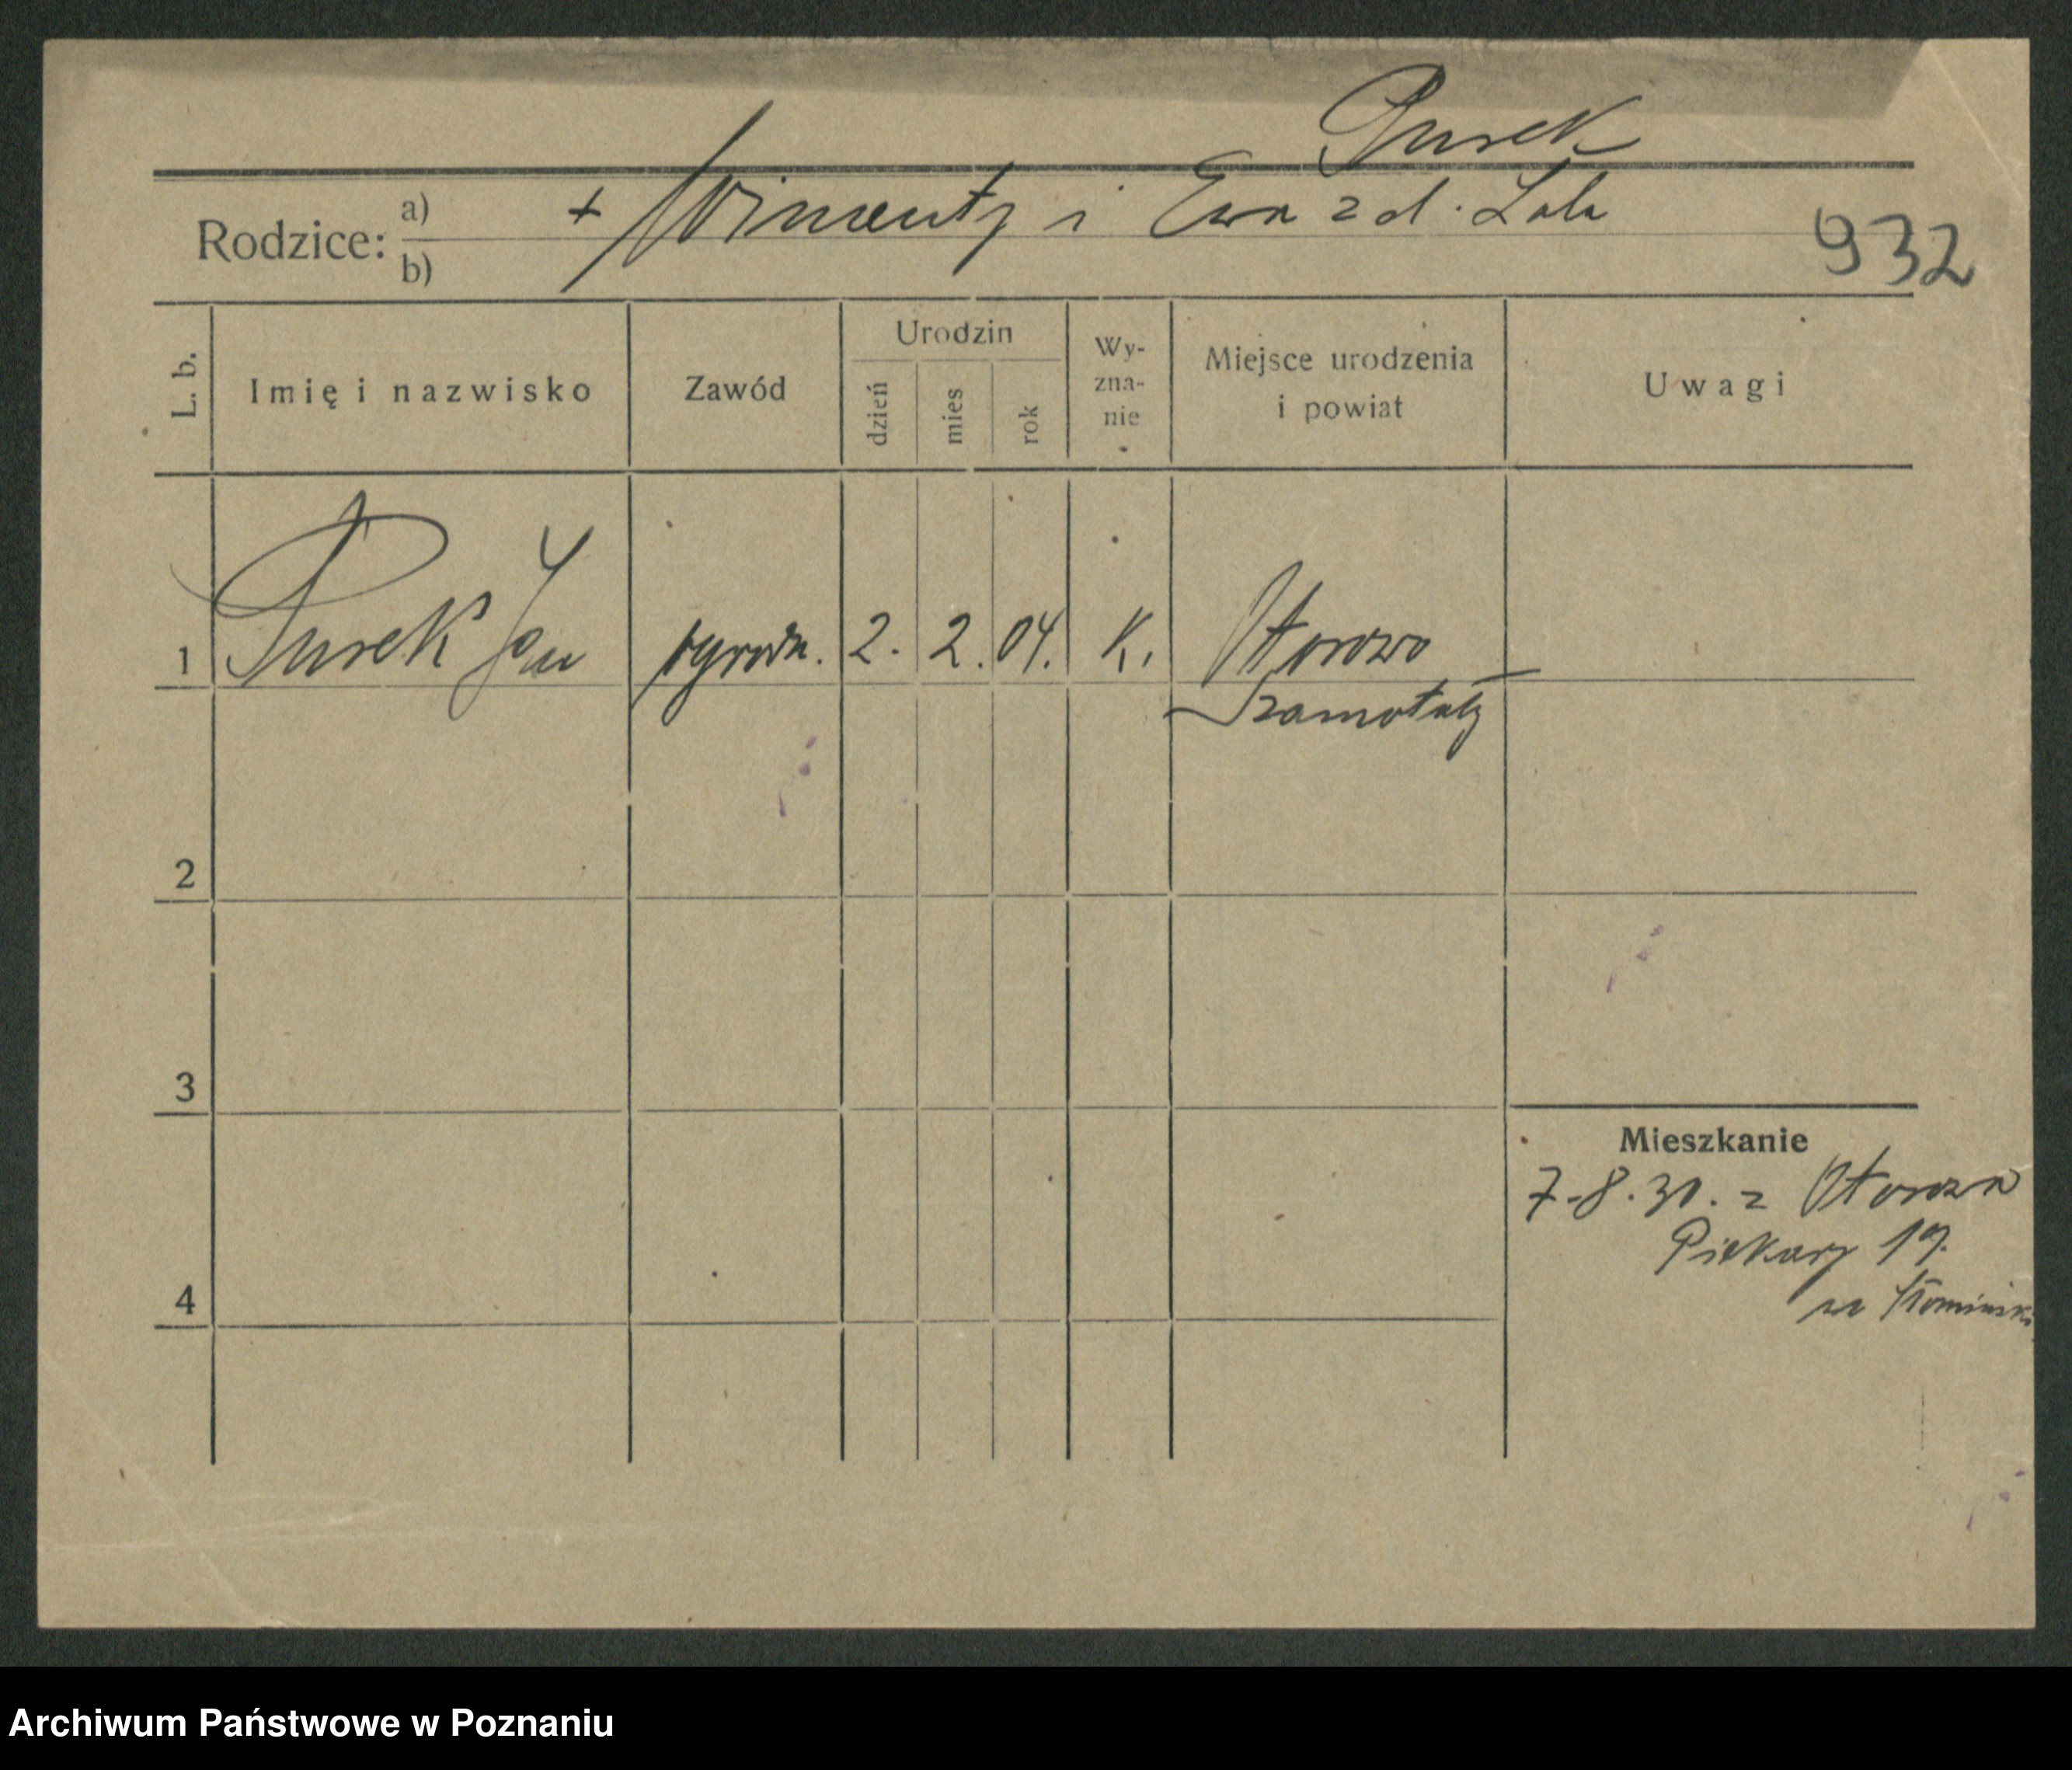 Purek
Rodzice: a) + Wincenty i Ewa z d. Lala
b)
932
L. b. Imię i nazwisko Zawód Urodzin dzień mies rok Wy-zna-nie Miejsce urodzenia i powiat Uwagi
1 Purek Jan ogrodn. 2. 2. 04. K. Otorowo
Szamotuły
2
3
Mieszkanie
7-8.30. z Otorowa
Piekary 19.
4
Archiwum Państwowe w Poznaniu